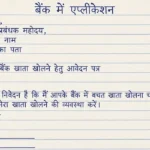 बैंक में एप्लीकेशन
प्रबंधक महोदय,
नाम
का पता
बैंक खाता खोलने हेतु आवेदन पत्र
निवेदन है कि मैं आपके बैंक में बचत खाता खोलना च
मेरा खाता खोलने की व्यवस्था करें।